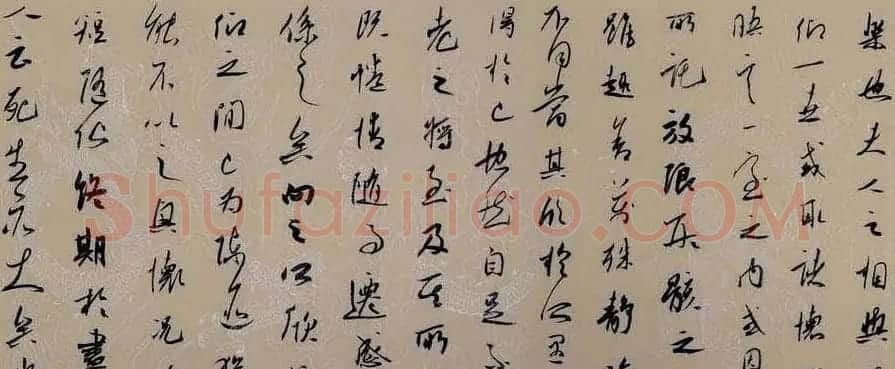 樂也夫人之相與
仰一世或取諸懷
晤言一室之內或因
所託放浪形骸之
雖趣舍萬殊靜
不同當其欣於所遇
得於己怏然自足不
老之將至及其所
既惓情隨事遷感
係之矣向之所欣
仰之間已為陳迹猶
能不以之興懷況
短隨化終期於盡
人云死生亦大矣
Shufaziliao.COM